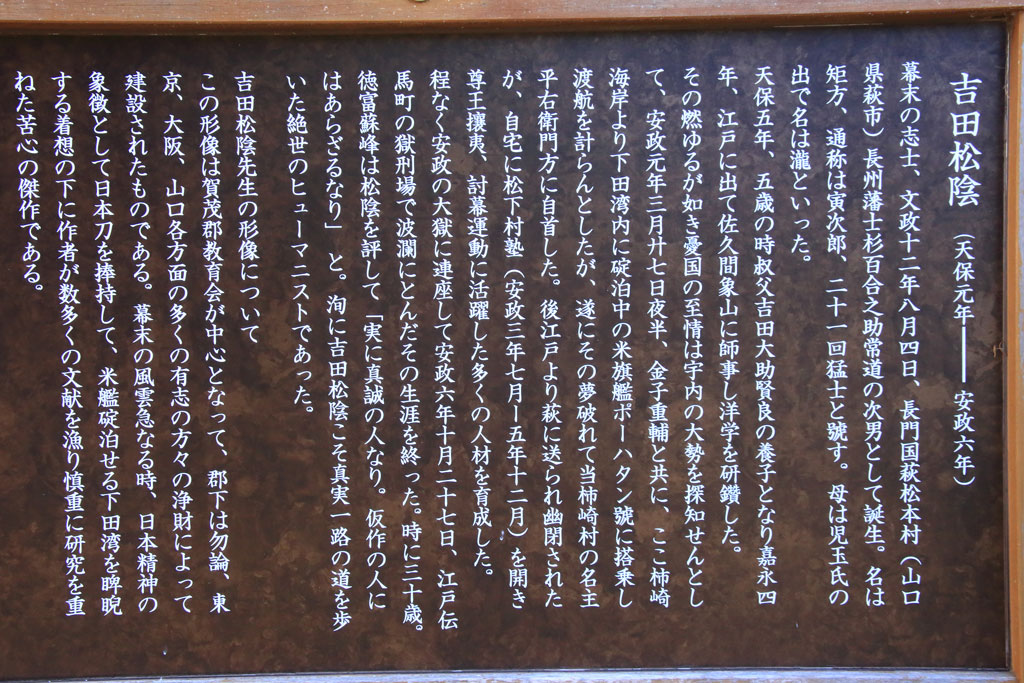 吉田松陰 (天保元年――安政六年)
幕末の志士、文政十二年八月四日、長門国萩松本村(山口
県萩市)長州藩士杉百合之助常道の次男として誕生。名は
矩方、通称は寅次郎、二十一回猛士と號す。母は児玉氏の
出で名は瀧といった。
天保五年、五歳の時叔父吉田大助賢良の養子となり嘉永四
年、江戸に出て佐久間象山に師事し洋学を研鑽した。
その燃ゆるが如き憂国の至情は宇内の大勢を探知せんとし
て、安政元年三月廾七日夜半、金子重輔と共に、ここ柿崎
海岸より下田湾内に碇泊中の米旗艦ポーハタン號に搭乗し
渡航を計らんとしたが、遂にその夢破れて当柿崎村の名主
平右衛門方に自首した。後江戸より萩に送られ幽閉された
が、自宅に松下村塾(安政三年七月ー五年十二月)を開き
尊王攘夷、討幕運動に活躍した多くの人材を育成した。
程なく安政の大獄に連座して安政六年十月二十七日、江戸伝
馬町の獄刑場で波瀾にとんだその生涯を終った。時に三十歳。
徳富蘇峰は松陰を評して「実に真誠の人なり。仮作の人に
はあらざるなり」と。洵に吉田松陰こそ真実一路の道を歩
いた絶世のヒューマニストであった。
吉田松陰先生の形像について
この形像は賀茂郡教育会が中心となって、郡下は勿論、東
京、大阪、山口各方面の多くの有志の方々の浄財によって
建設されたものである。幕末の風雲急なる時、日本精神の
象徴として日本刀を捧持して、米艦碇泊せる下田湾を睥睨
する着想の下に作者が数多くの文献を漁り慎重に研究を重
ねた苦心の傑作である。